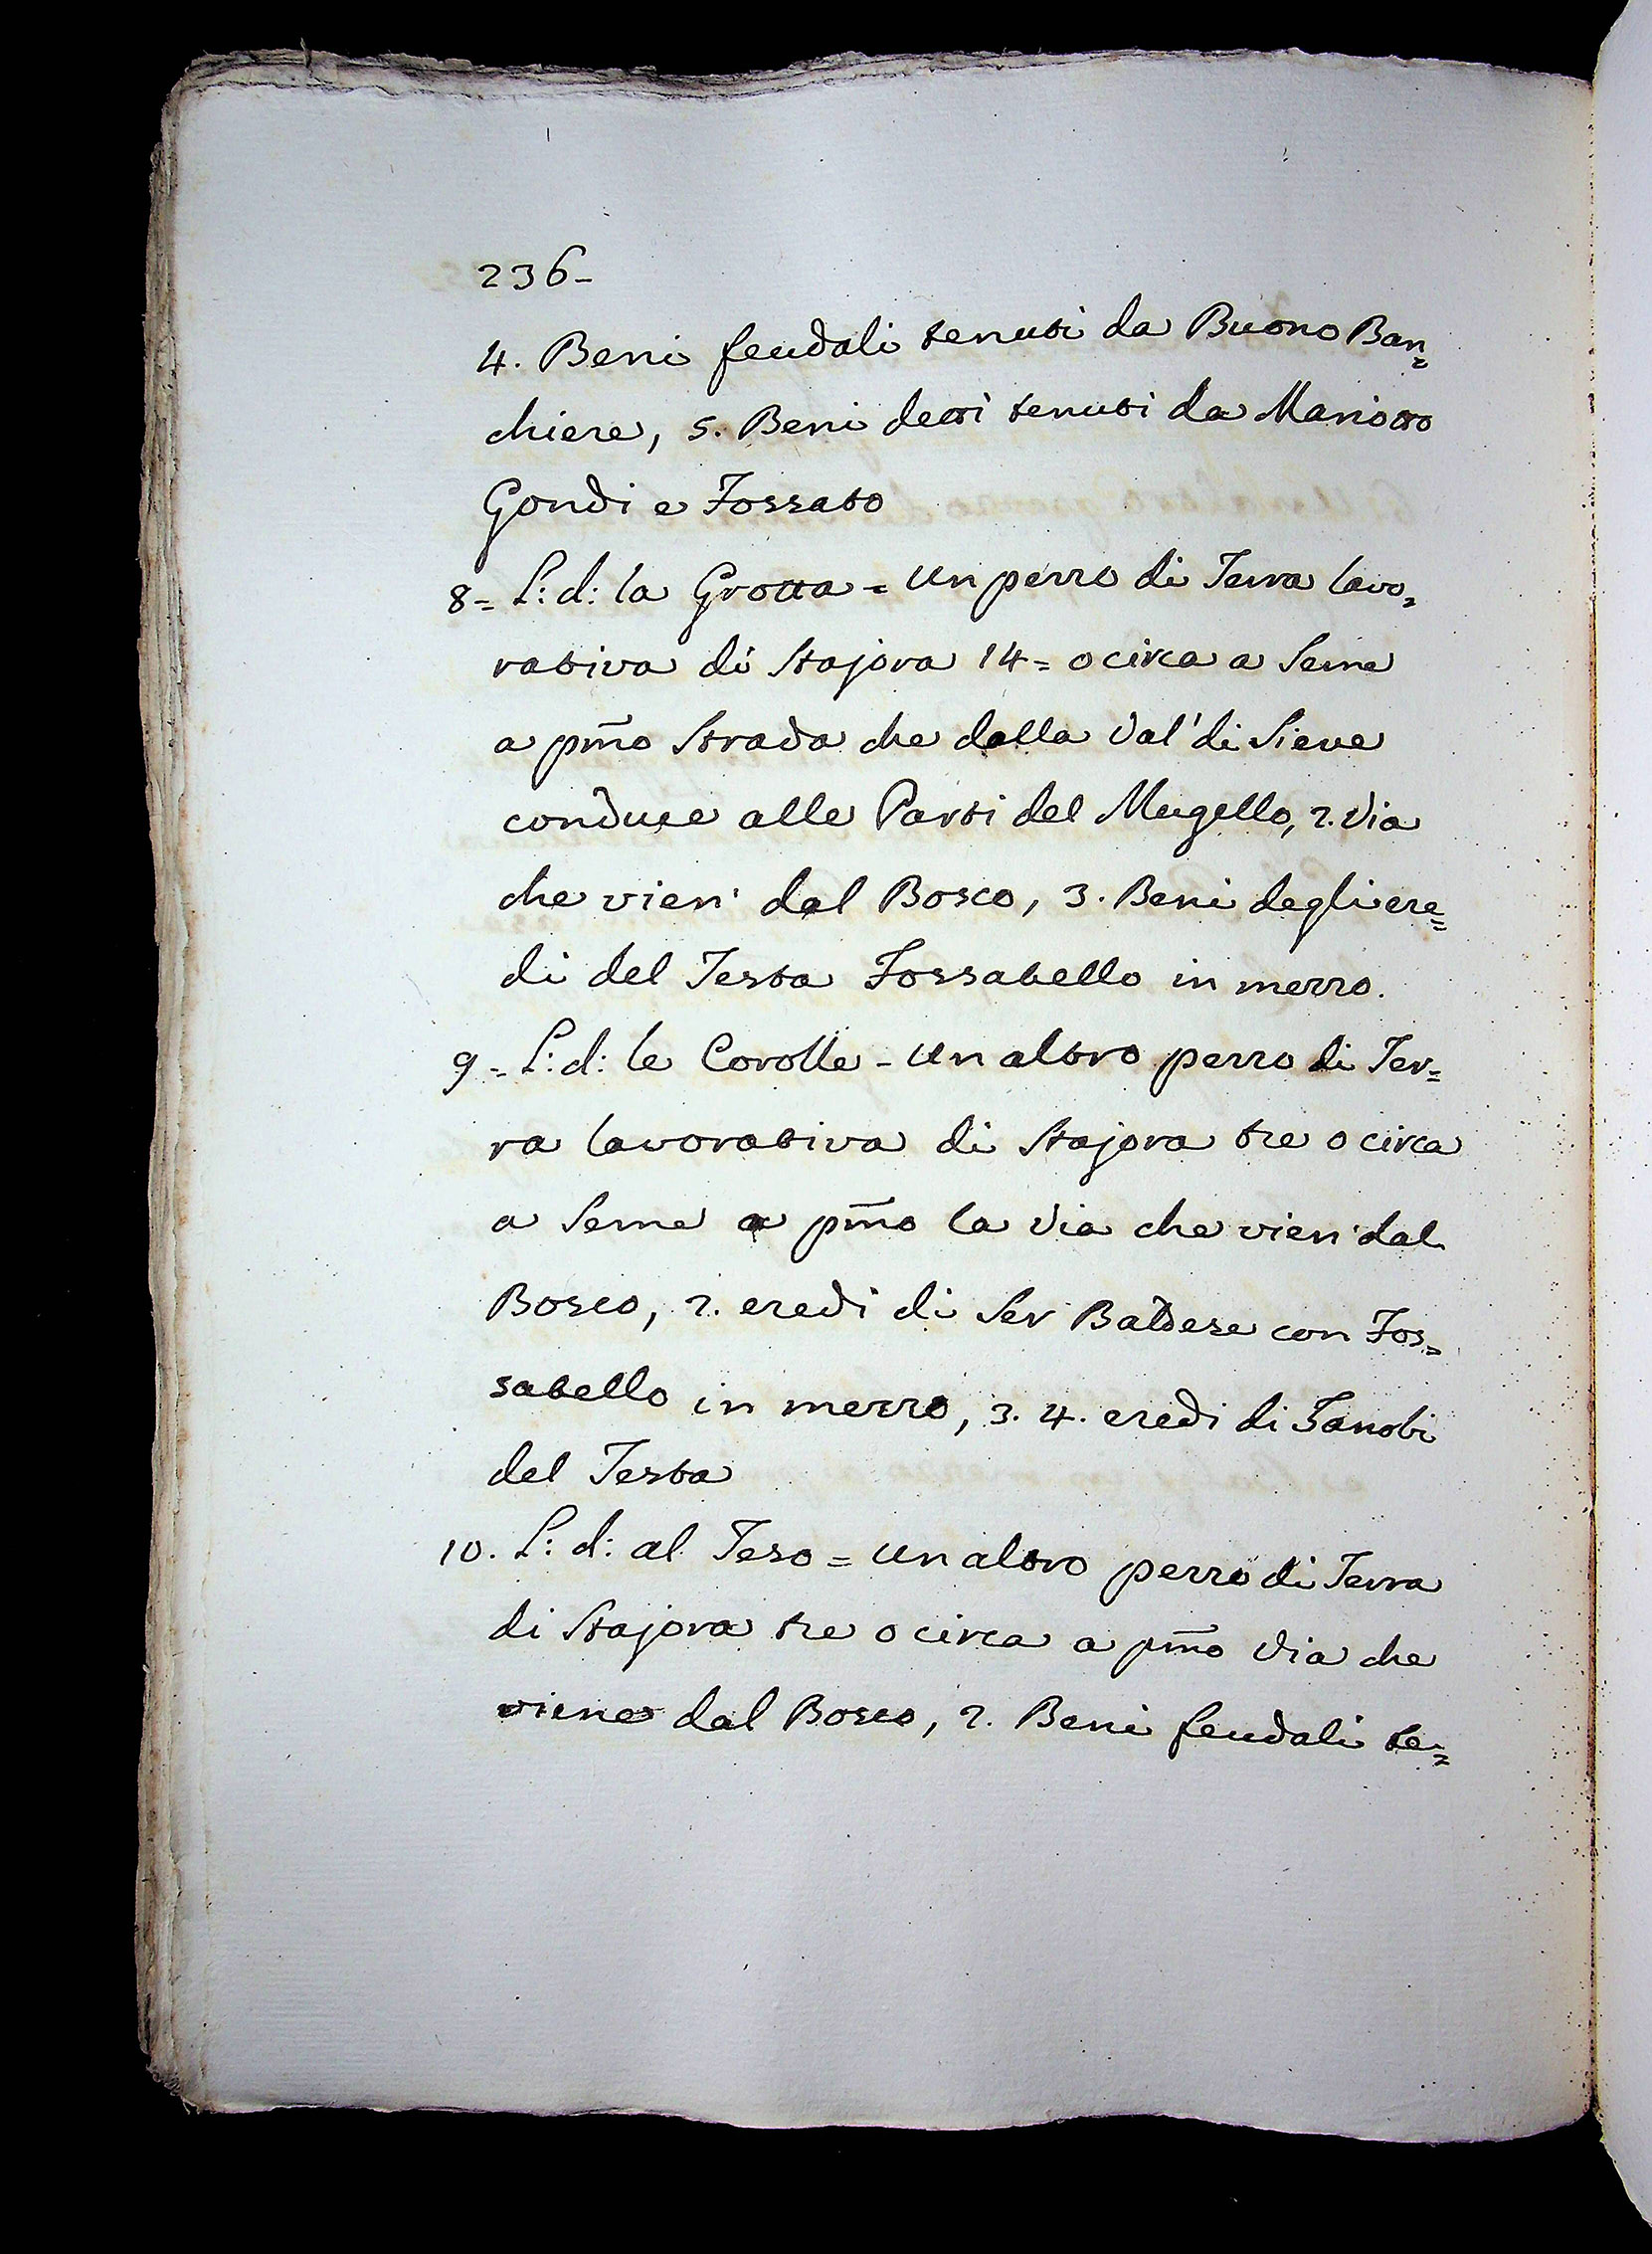 236-
4. Beni feudali tenuti da Buono Ban=
chiere, 5. Beni detti tenuti da Mariotto
Gondi e Fossato
8= L: d: la Grotta = Un pezzo di Terra lavo=
rativa di Stajora 14= o circa a Seme
a pm̃o Strada che dalla Val' di Sieve
conduce alle Parti del Mugello, 2. Via
che vien' dal Bosco, 3. Beni degli ere=
di del Testa Fossatello in mezzo.
9= L: d: le Corolle - Un altro pezzo di Ter=
ra lavorativa di Stajora tre o circa
a Seme a pm̃o la Via che vien' dal
Bosco, 2. eredi di Ser Baldese con Fos=
satello in mezzo, 3. 4. eredi di Zanobi
del Testa
10. L: d: al Teso = Un altro pezzo di Terra
di Stajora tre o circa a pm̃o Via che
viene dal Bosco, 2. Beni feudali te=